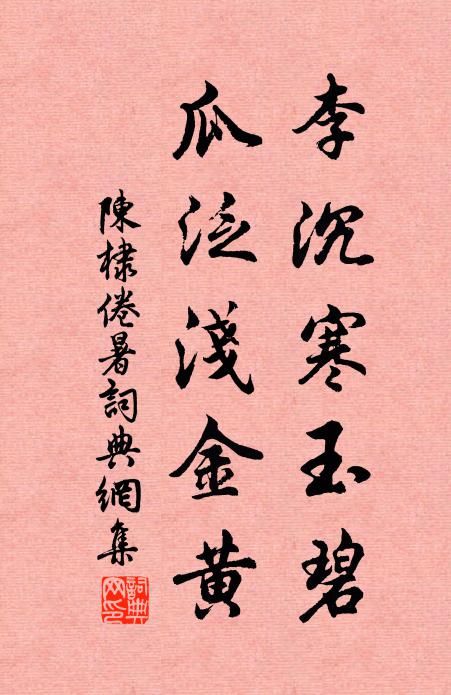 李沉寒玉碧
瓜泛淺金黃
陳棣倦暑詞典網集
詞典網印